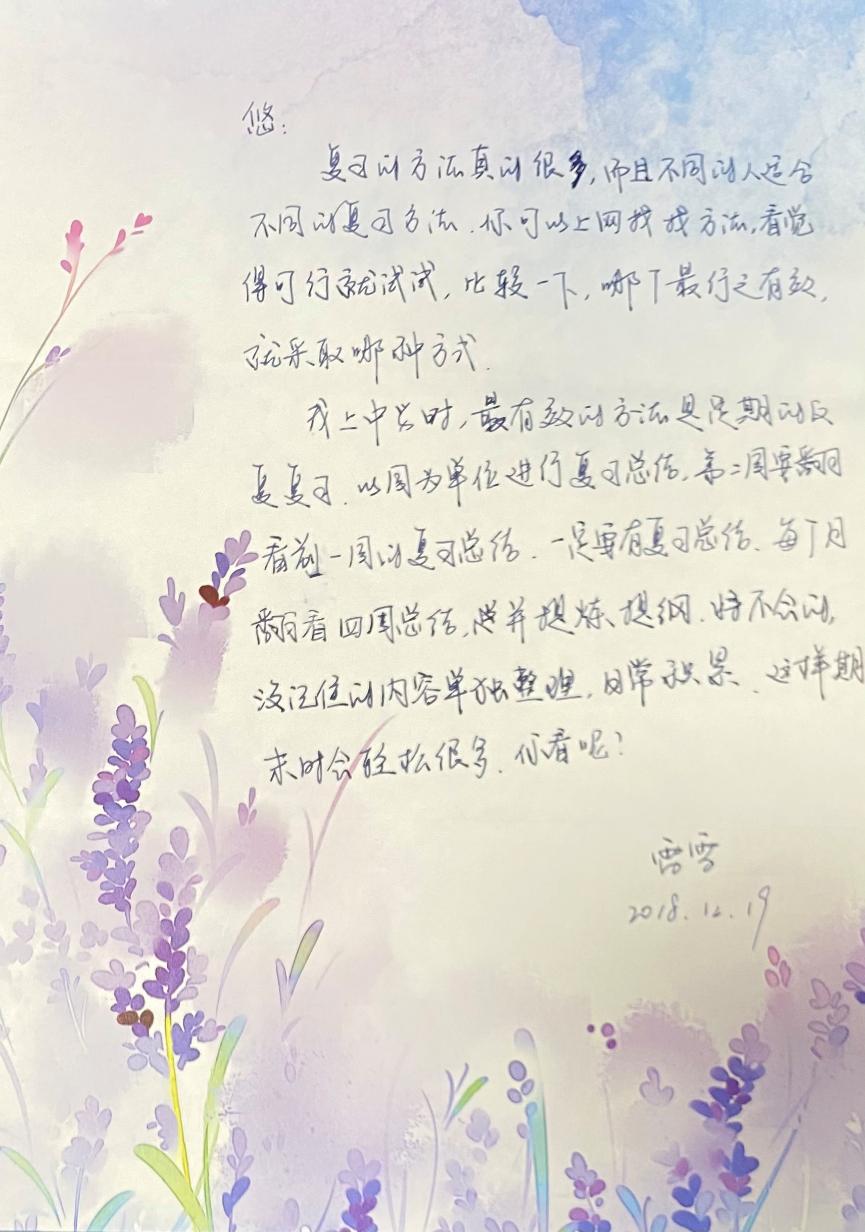 悠:
复习的方法真的很多,而且不同的人适合
不同的复习方法.你可以上网找找方法,看觉
得可行就试试,比较一下,哪个最行之有效,
就采取哪种方式.
我上中学时,最有效的方法是定期的反
复复习.以周为单位进行复习总结,第二周要翻
看前一周的复习总结.一定要有复习总结.每个月
翻看四周总结,并提炼提纲.将不会的,
没记住的内容单独整理,日常积累.这样期
末时会轻松很多.你看呢?
雪雪
2018.12.19